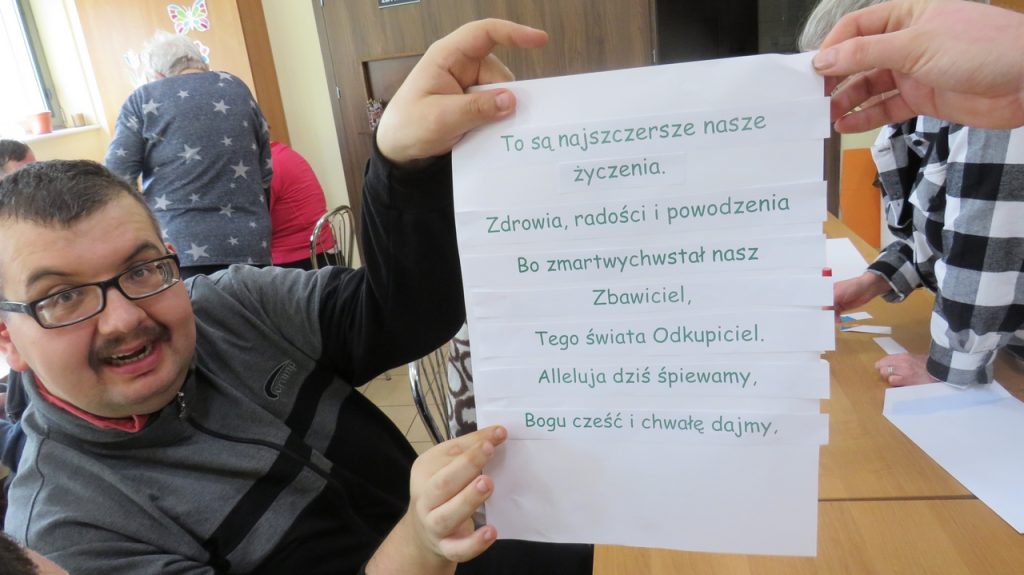 To są najszczersze nasze
życzenia.
Zdrowia, radości i powodzenia
Bo zmartwychwstał nasz
Zbawiciel,
Tego świata Odkupiciel.
Alleluja dziś śpiewamy,
Bogu cześć i chwałę dajmy,